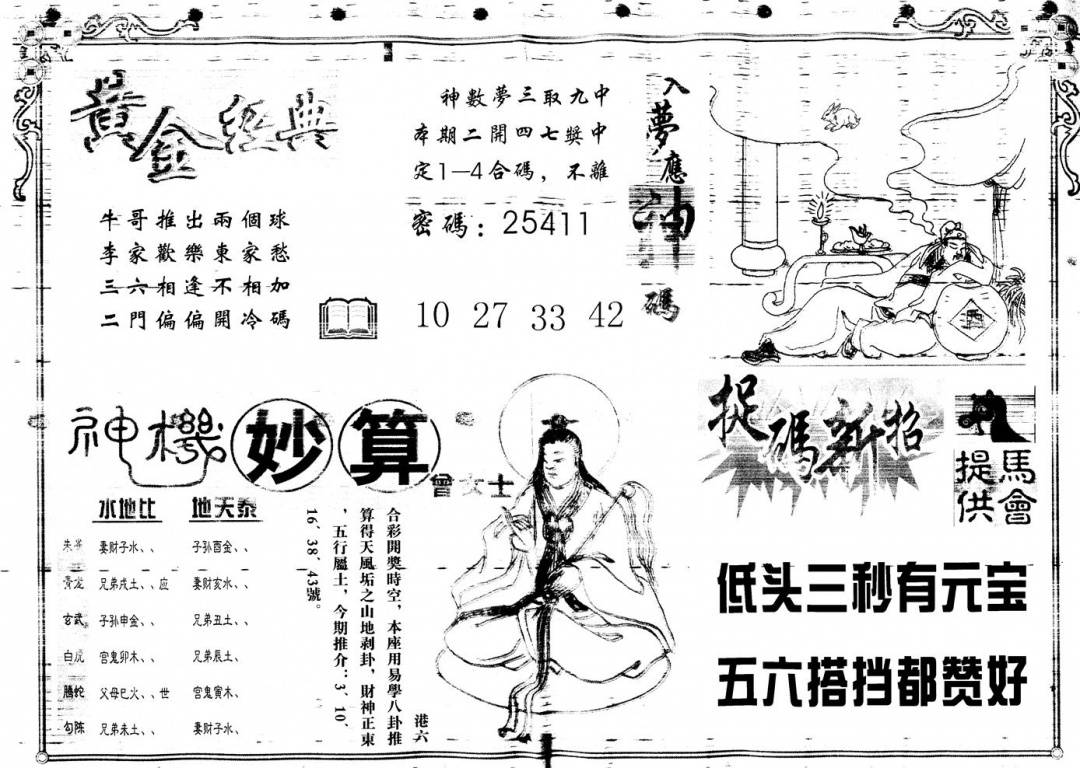 黃金經典
牛哥推出兩個球
李家歡樂東家愁
三六相逢不相加
二門偏偏開冷碼
神數夢三取九中
本期二開四七獎中
定1—4合碼，不離
密碼：25411
10 27 33 42
入夢應神碼
酒
神機妙算
曾女士
水地比 地天泰
妻財子水、、 子孙酉金、、
青龙 兄弟戌土、、应 妻财亥水、、
玄武 子孙申金、、 兄弟丑土、、
白虎 官鬼卯木、、 兄弟辰土、
腾蛇 父母巳火、、世 官鬼寅木、
勾陈 兄弟未土、、 妻财子水、
港六
合彩開獎時空，本座用易學八卦推
算得天風垢之山地剥卦，財神正東
，五行屬土，今期推介：3、10、
16、38、43號。
捉碼新招
馬會
提供
低头三秒有元宝
五六搭挡都赞好